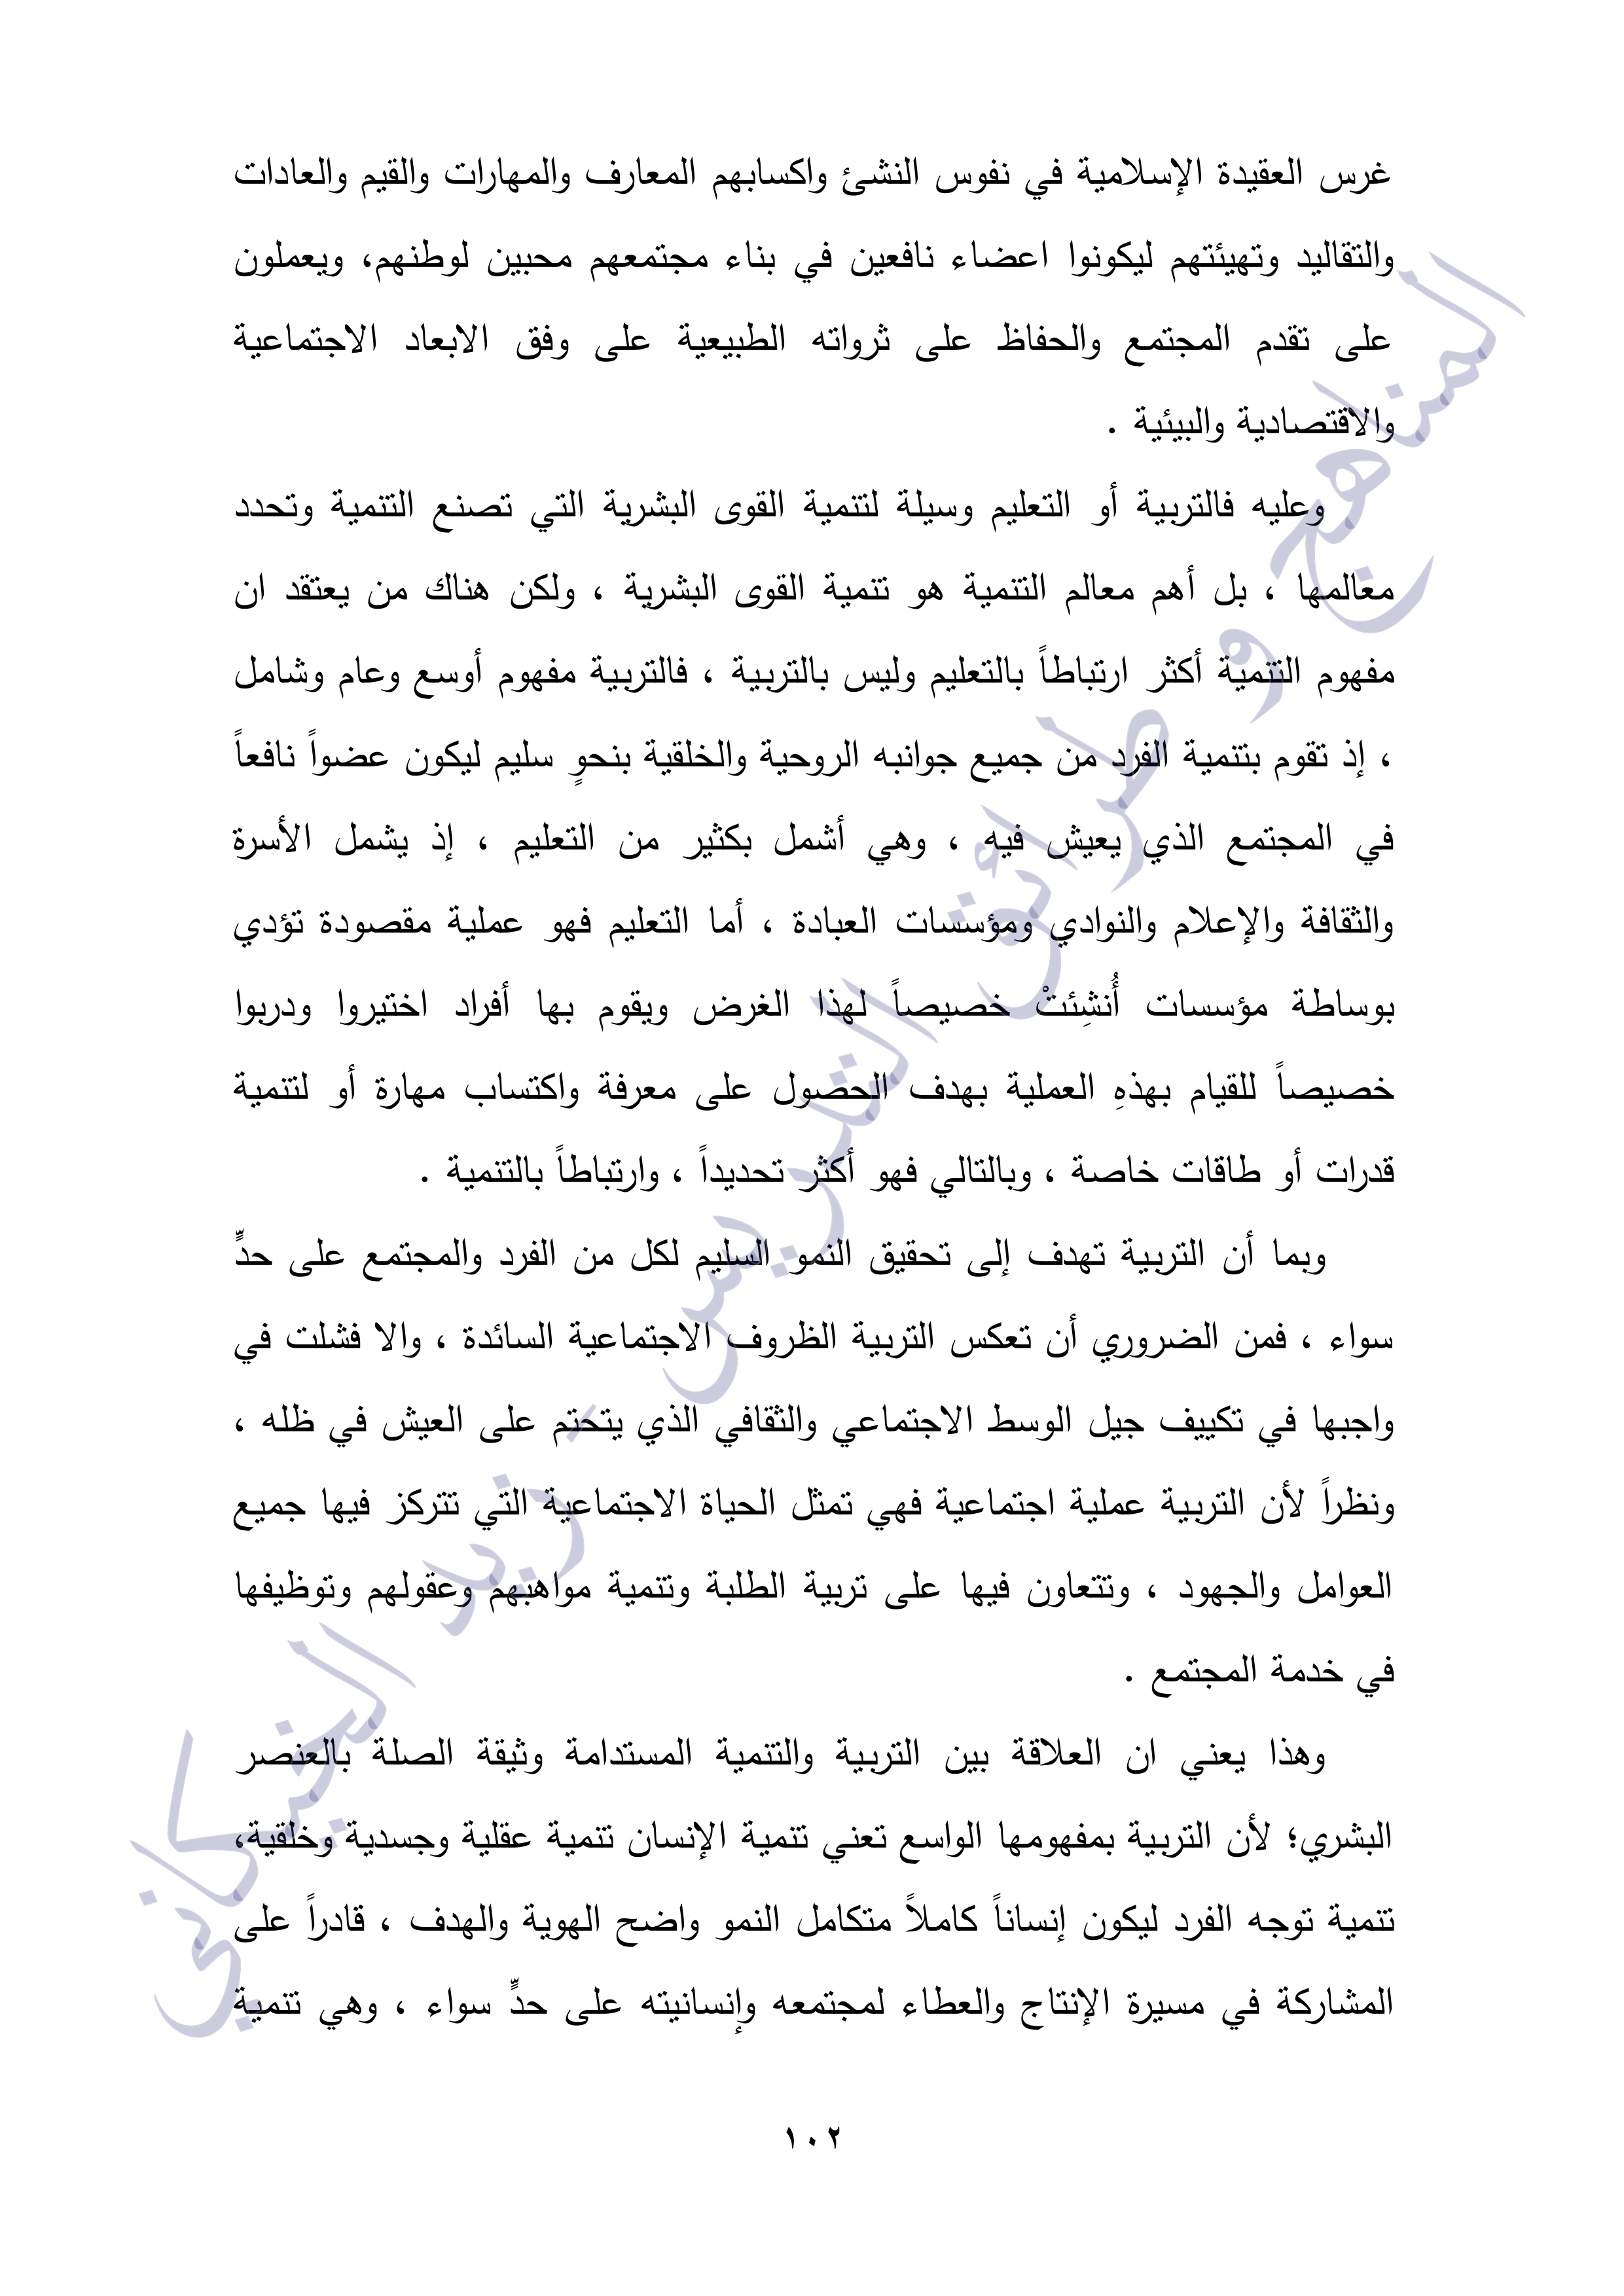 غرس العقيدة الإسلامية في نفوس النشئ واكسابهم المعارف والمهارات والقيم والعادات
والتقاليد وتهيئتهم ليكونوا اعضاء نافعين في بناء مجتمعهم محبين لوطنهم، ويعملون
على تقدم المجتمع والحفاظ على ثرواته الطبيعية على وفق الابعاد الاجتماعية
والاقتصادية والبيئية .
وعليه فالتربية أو التعليم وسيلة لتنمية القوى البشرية التي تصنع التنمية وتحدد
معالمها ، بل أهم معالم التنمية هو تنمية القوى البشرية ، ولكن هناك من يعتقد ان
مفهوم التنمية أكثر ارتباطاً بالتعليم وليس بالتربية ، فالتربية مفهوم أوسع وعام وشامل
، إذ تقوم بتنمية الفرد من جميع جوانبه الروحية والخلقية بنحوٍ سليم ليكون عضواً نافعاً
في المجتمع الذي يعيش فيه ، وهي أشمل بكثير من التعليم ، إذ يشمل الأسرة
والثقافة والإعلام والنوادي ومؤسسات العبادة ، أما التعليم فهو عملية مقصودة تؤدي
بوساطة مؤسسات أُنشِئتْ خصيصاً لهذا الغرض ويقوم بها أفراد اختيروا ودربوا
خصيصاً للقيام بهذهِ العملية بهدف الحصول على معرفة واكتساب مهارة أو لتنمية
قدرات أو طاقات خاصة ، وبالتالي فهو أكثر تحديداً ، وارتباطاً بالتنمية .
وبما أن التربية تهدف إلى تحقيق النمو السليم لكل من الفرد والمجتمع على حدٍّ
سواء ، فمن الضروري أن تعكس التربية الظروف الاجتماعية السائدة ، والا فشلت في
واجبها في تكييف جيل الوسط الاجتماعي والثقافي الذي يتحتم على العيش في ظله ،
ونظراً لأن التربية عملية اجتماعية فهي تمثل الحياة الاجتماعية التي تتركز فيها جميع
العوامل والجهود ، وتتعاون فيها على تربية الطلبة وتنمية مواهبهم وعقولهم وتوظيفها
في خدمة المجتمع .
وهذا يعني ان العلاقة بين التربية والتنمية المستدامة وثيقة الصلة بالعنصر
البشري؛ لأن التربية بمفهومها الواسع تعني تنمية الإنسان تنمية عقلية وجسدية وخلقية،
تنمية توجه الفرد ليكون إنساناً كاملاً متكامل النمو واضح الهوية والهدف ، قادراً على
المشاركة في مسيرة الإنتاج والعطاء لمجتمعه وإنسانيته على حدٍّ سواء ، وهي تنمية
١٠٢
المناهج و طرائق التدريس - زيد الخيكاني